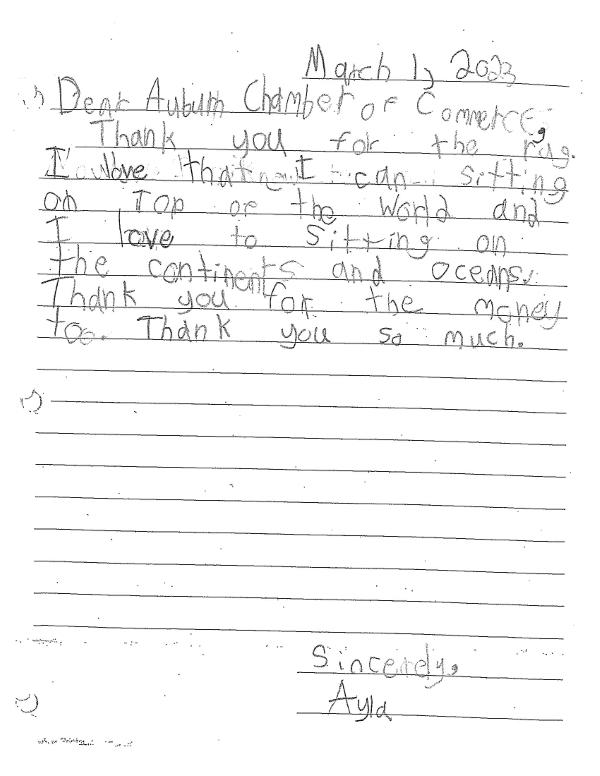 March 1, 2023
Dear Auburn Chamber of Commerce,
Thank you for the rug.
I love that I can sitting
on Top of the World and
I love to Sitting on
the continents and oceans.
Thank you for the money
too. Thank you so much.
Sincerely,
Ayla